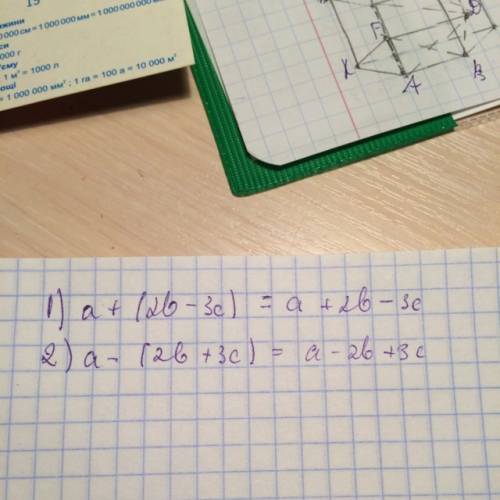 15
жини
000 см = 1 000 000 мм = 1 000 000 000
си
000 г
'єму
1 м³ = 1000 л
ощі
= 1 000 000 мм² ; 1 га = 100 а = 10 000 м²
F
K
A
B
1) a + (2b - 3c) = a + 2b - 3c
2) a - (2b + 3c) = a - 2b + 3c